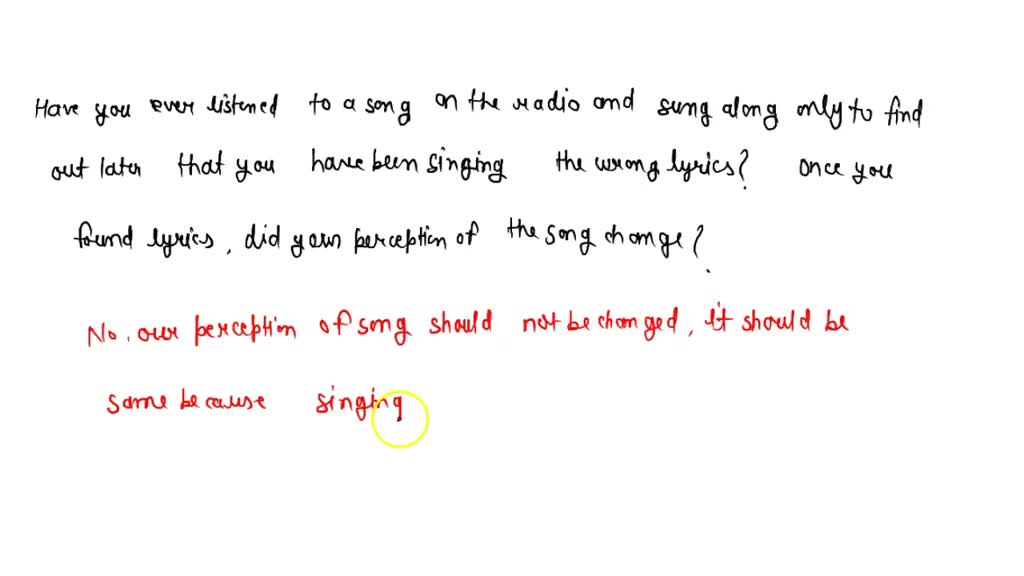 Have you ever listened to a song on the radio and sung along only to find
out later that you have been singing the wrong lyrics? once you
found lyrics, did your perception of the song change?
No, our perception of song should not be changed, it should be
same because singing